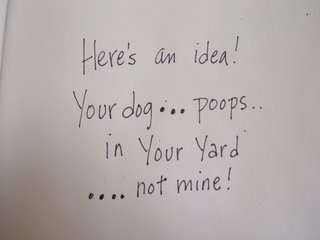 Here's an idea!
Your dog... poops..
in Your Yard
.... not mine!